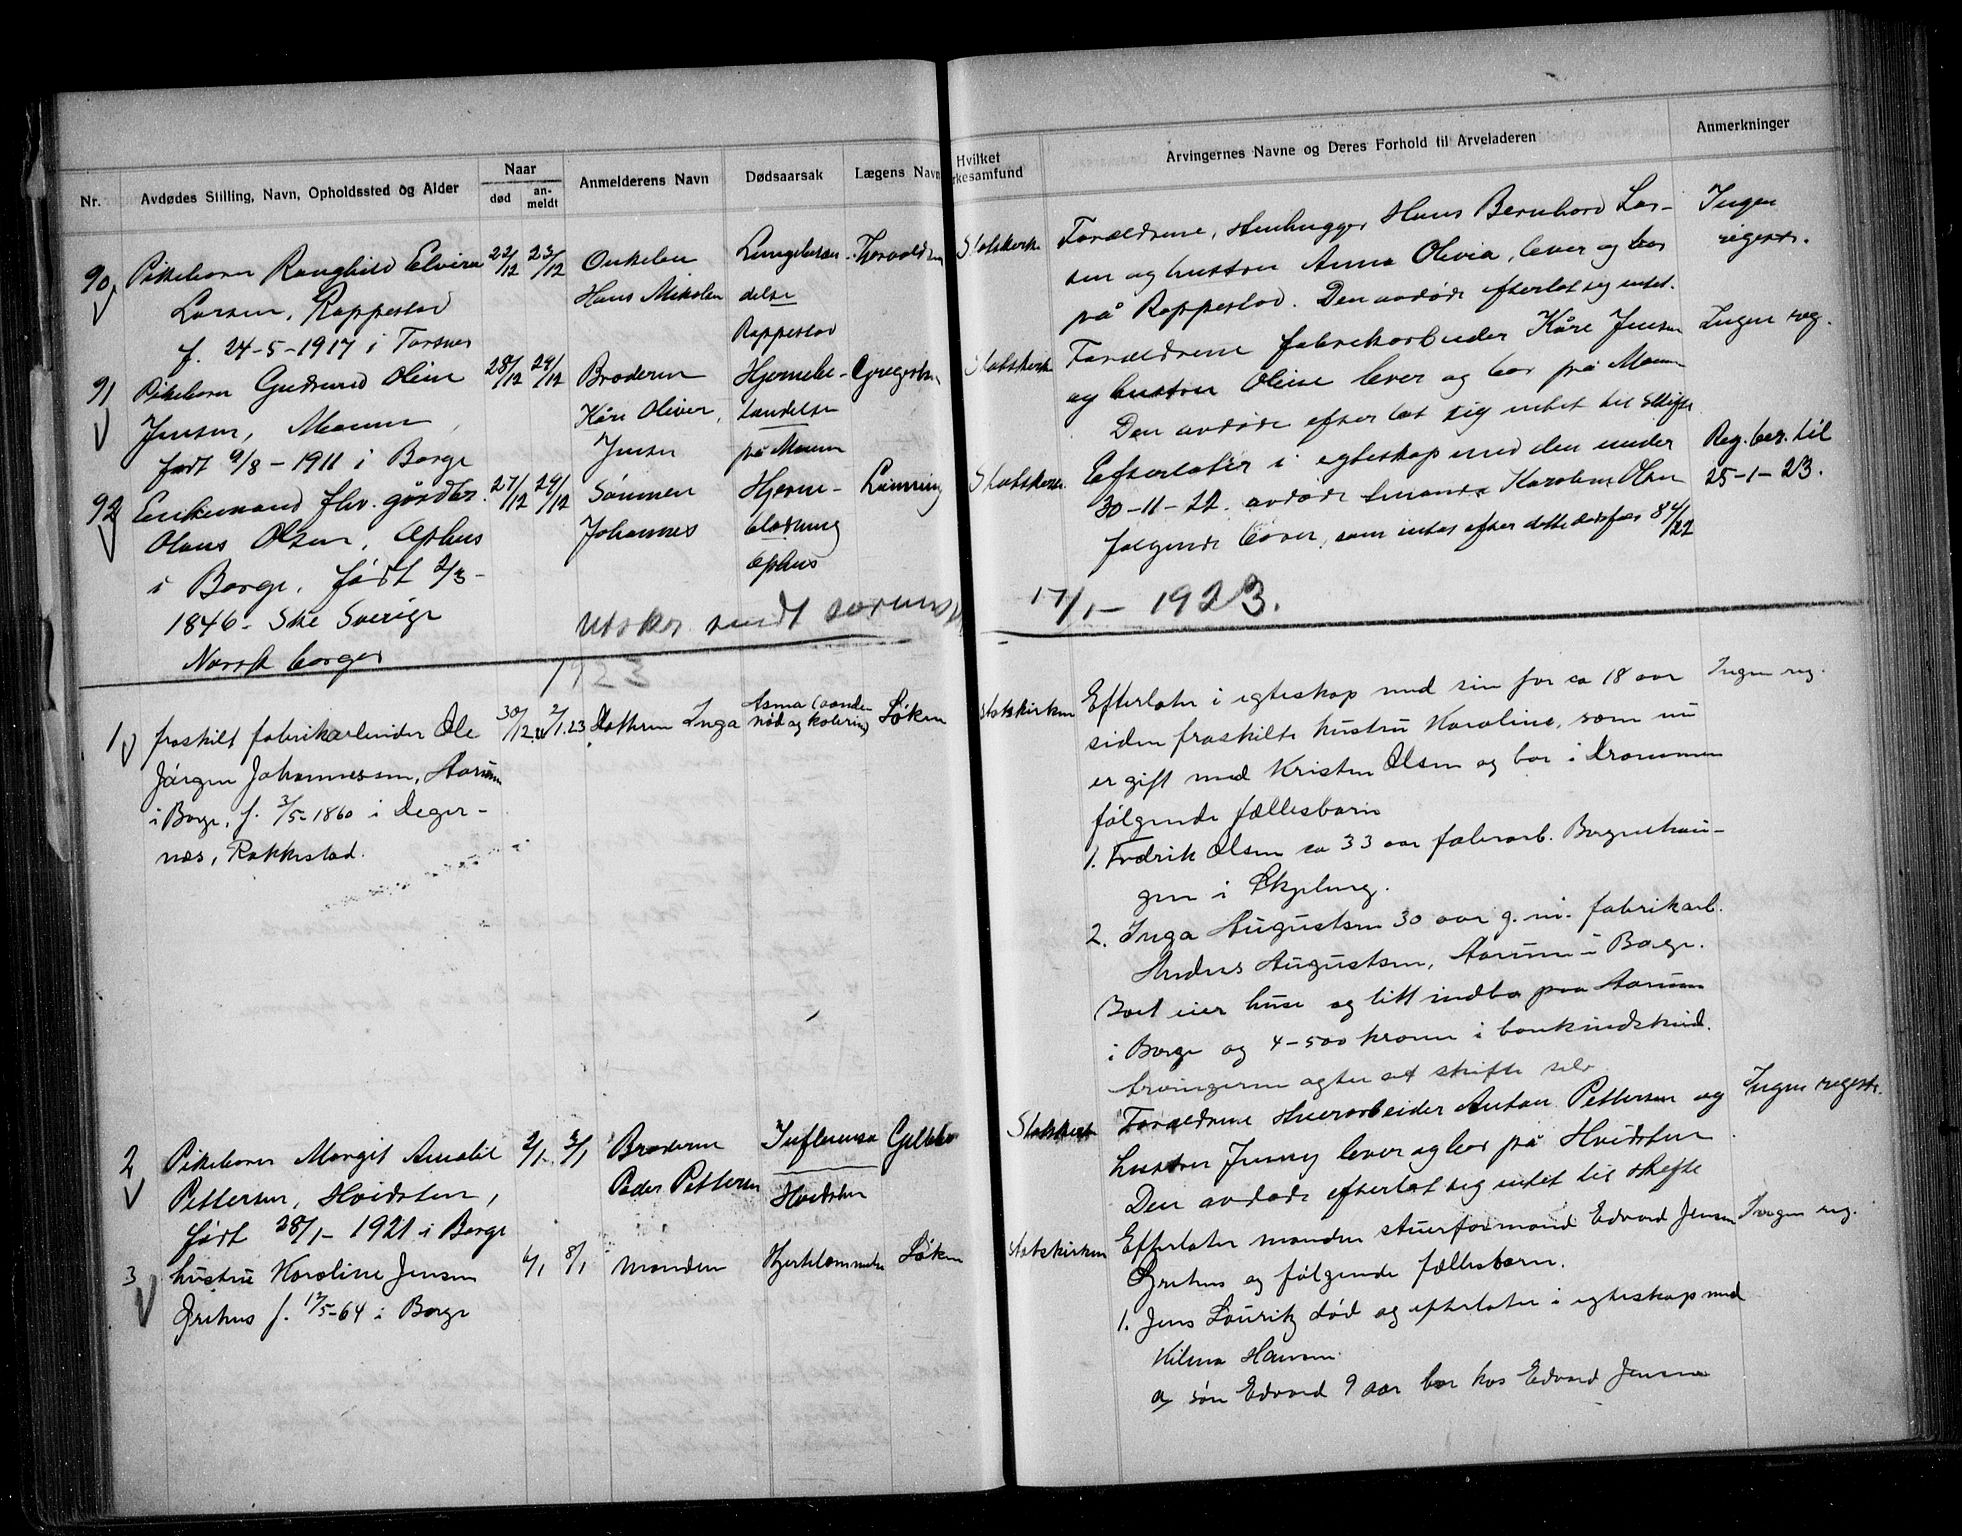 Nr.
Avdødes Stilling, Navn, Opholdssted og Alder
Naar
død
an-
meldt
Anmelderens Navn
Dødsaarsak
Lægens Navn
Hvilket
rkesamfund
Arvingernes Navne og Deres Forhold til Arveladeren
Anmerkninger
90
Pikebarn Ranghild Elvira
Larsen, Rappestad
f. 24-5-1917 i Torsnes
22/12
23/12
Onkelen
Hans Mikolen
Lungebetæn
delse
Rappestad
Thorvaldsen
Statskirke
Forældrene, stenhugger Hans Bernhard Lar-
sen og hustru Anna Olivia, lever og bor
på Rappestad. Den avdøde efterlot sig intet.
Ingen
registr.
91
Pikebarn Gudrund Oline
Jensen, Moum
født 9/8-1911 i Borge
28/12
29/12
Broderen
Kåre Oliver,
Jensen
Hjernebe-
tændelse
på Moum
Gregersen
Statskirke
Forældrene fabrikarbeider Kåre Jensen
og hustru Oline lever og bor på Moum
Den avdøde efterlot sig intet til skifte
Ingen reg.
92
Enkemand fhv. gårdbr.
Olaus Olsen, Ophus
i Borge, født 2/3-
1846- Ske Sverige
Norsk borger
27/12
29/12
Sønnen
Johannes
Hjerne-
blødning
Ophus
Lønning
Statskirke
Efterlater i egteskap med den under
30-11-22 avdøde Karoline Olsen
følgende barn, som intas efter dette dødsfær 84/22
Reg. ber. til
25-1-23.
Utskr. sendt sorensk
17/1-1923.
1923
1
fraskilt fabrikarbeider Ole
Jørgen Johannessen, Aarum
i Borge, f. 3/5-1860 i Deger-
næs, Rakkestad.
30/12.22
2/1.23
Datteren Inga
Asma (aande-
nød og kolering
Løken
Statskirken
Efterlater i egteskap med sin for ca 18 aar
siden fraskilte hustru Karoline, som nu
er gift med Kristen Olsen og bor i Drammen
følgende fællesbarn
1. Fredrik Olsen ca 33 aar fabrarb. Borgnehau-
gen i Skjeberg.
2. Inga Augustsen 30 aar g. m. fabrikarb.
Anders Augustsen, Aarum i Borge.
Boet eier huse og litt indbo paa Aarum
i Borge og 4-500 kroner i bankindskud.
Arvingerne agter at skifte selv
Ingen reg.
2
Pikebarn Margit Amalie
Pettersen, Hvidsten,
født 28/1-1921 i Borge
2/1
3/1
Broderen
Peder Pettersen
Influensa
Hvidsten
Gylteb
Statskirk
Forældrene stuerarbeider Anton Pettersen og
hustru Jenny lever og bor på Hvidsten
Den avdøde efterlot sig intet til skifte
Ingen registr.
3
hustru Karoline Jensen
Grehus f. 17/5-64 i Borge
6/1
8/1
Manden
Hjertelammelse
Løken
Statskirken
Efterlater manden stuerformand Edvard Jensen
Grehus og følgende fællesbarn.
1. Jens Lauritz død og efterlater i egteskap med
Vilma Hansen.
a) søn Edvard 9 aar bor hos Edvard Jensen
Ingen reg.